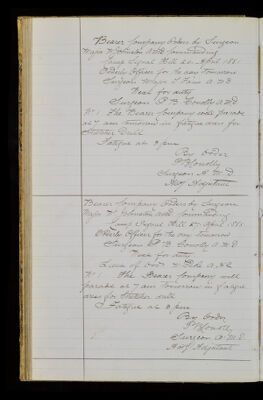 Bearer Company Orders by Surgeon
Major W Johnston AMD Commanding
Camp Signal Hill 26 April 1881
Orderly Officer for the day tomorrow
Surgeon Major AMD
Next for duty
Surgeon P B Conolly AMD
No 1 The Bearer Company will parade
at 7 am tomorrow in fatigue dress for
Stretcher Drill
Fatigue at 2 pm
By Order
P B Conolly
Surgeon A M D
Actg Adjutant
Bearer Company Orders by Surgeon
Major W Johnston AMD Commanding
Camp Signal Hill 27 April 1881
Orderly Officer for the day tomorrow
Surgeon P B Conolly AMD
Next for duty
Lieut of Ords
No 1 The Bearer Company will
parade at 7 am tomorrow in fatigue
dress for Stretcher drill
Fatigue at 2 pm
By Order
P B Conolly
Surgeon A M D
Actg Adjutant